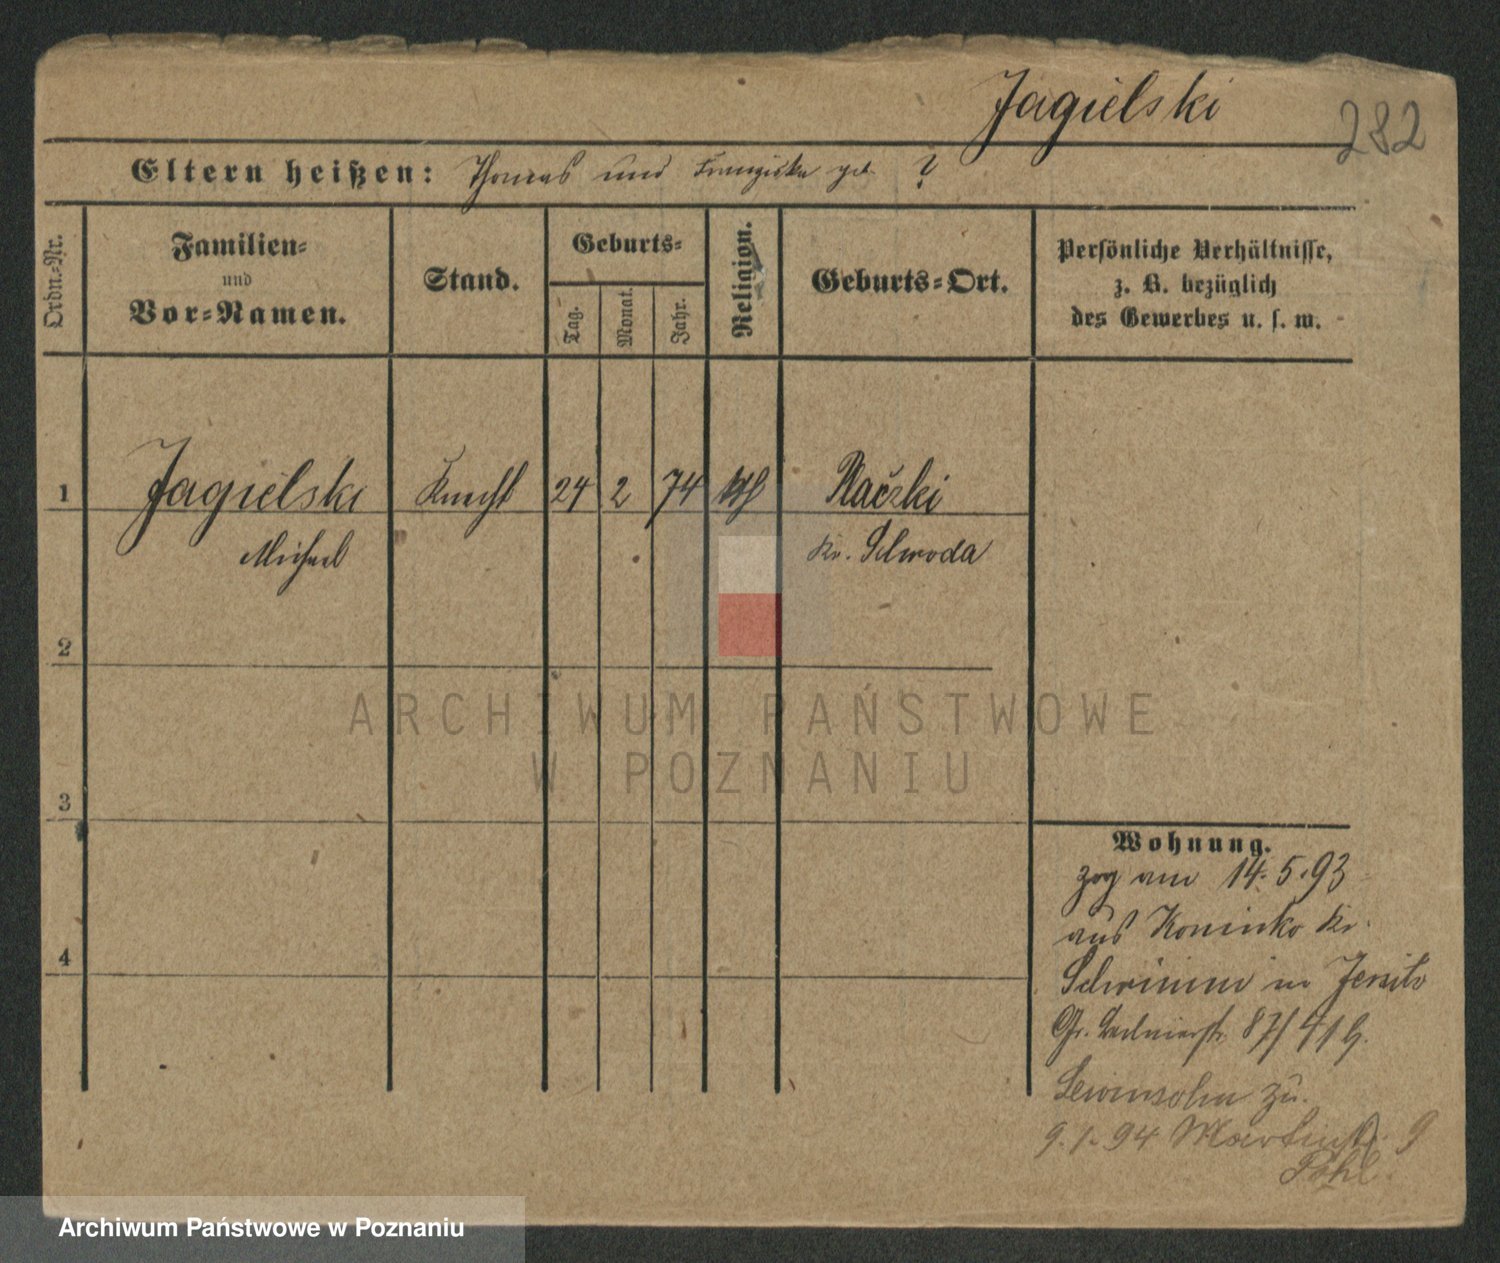 Jagielski
282
Eltern heißen: Thomas und Franziska geb. ?
Ordn.-Nr.
Familien-
und
Vor-Namen.
Stand.
Geburts-
Tag.
Monat.
Jahr.
Religion.
Geburts-Ort.
Persönliche Verhältnisse,
z. B. bezüglich
des Gewerbes u. s. w.
1 Jagielski Knecht 24 2 74 kth
Michael Kr. Schroda
2
3
4
ARCHIWUM PAŃSTWOWE
W POZNANIU
Wohnung.
zog am 14.5.93
aus Koninko Kr.
Schrimm in Jersitz
87/41
Lewinsohn zu.
9.1.94 Martinstr. 9
Pohl.
Archiwum Państwowe w Poznaniu